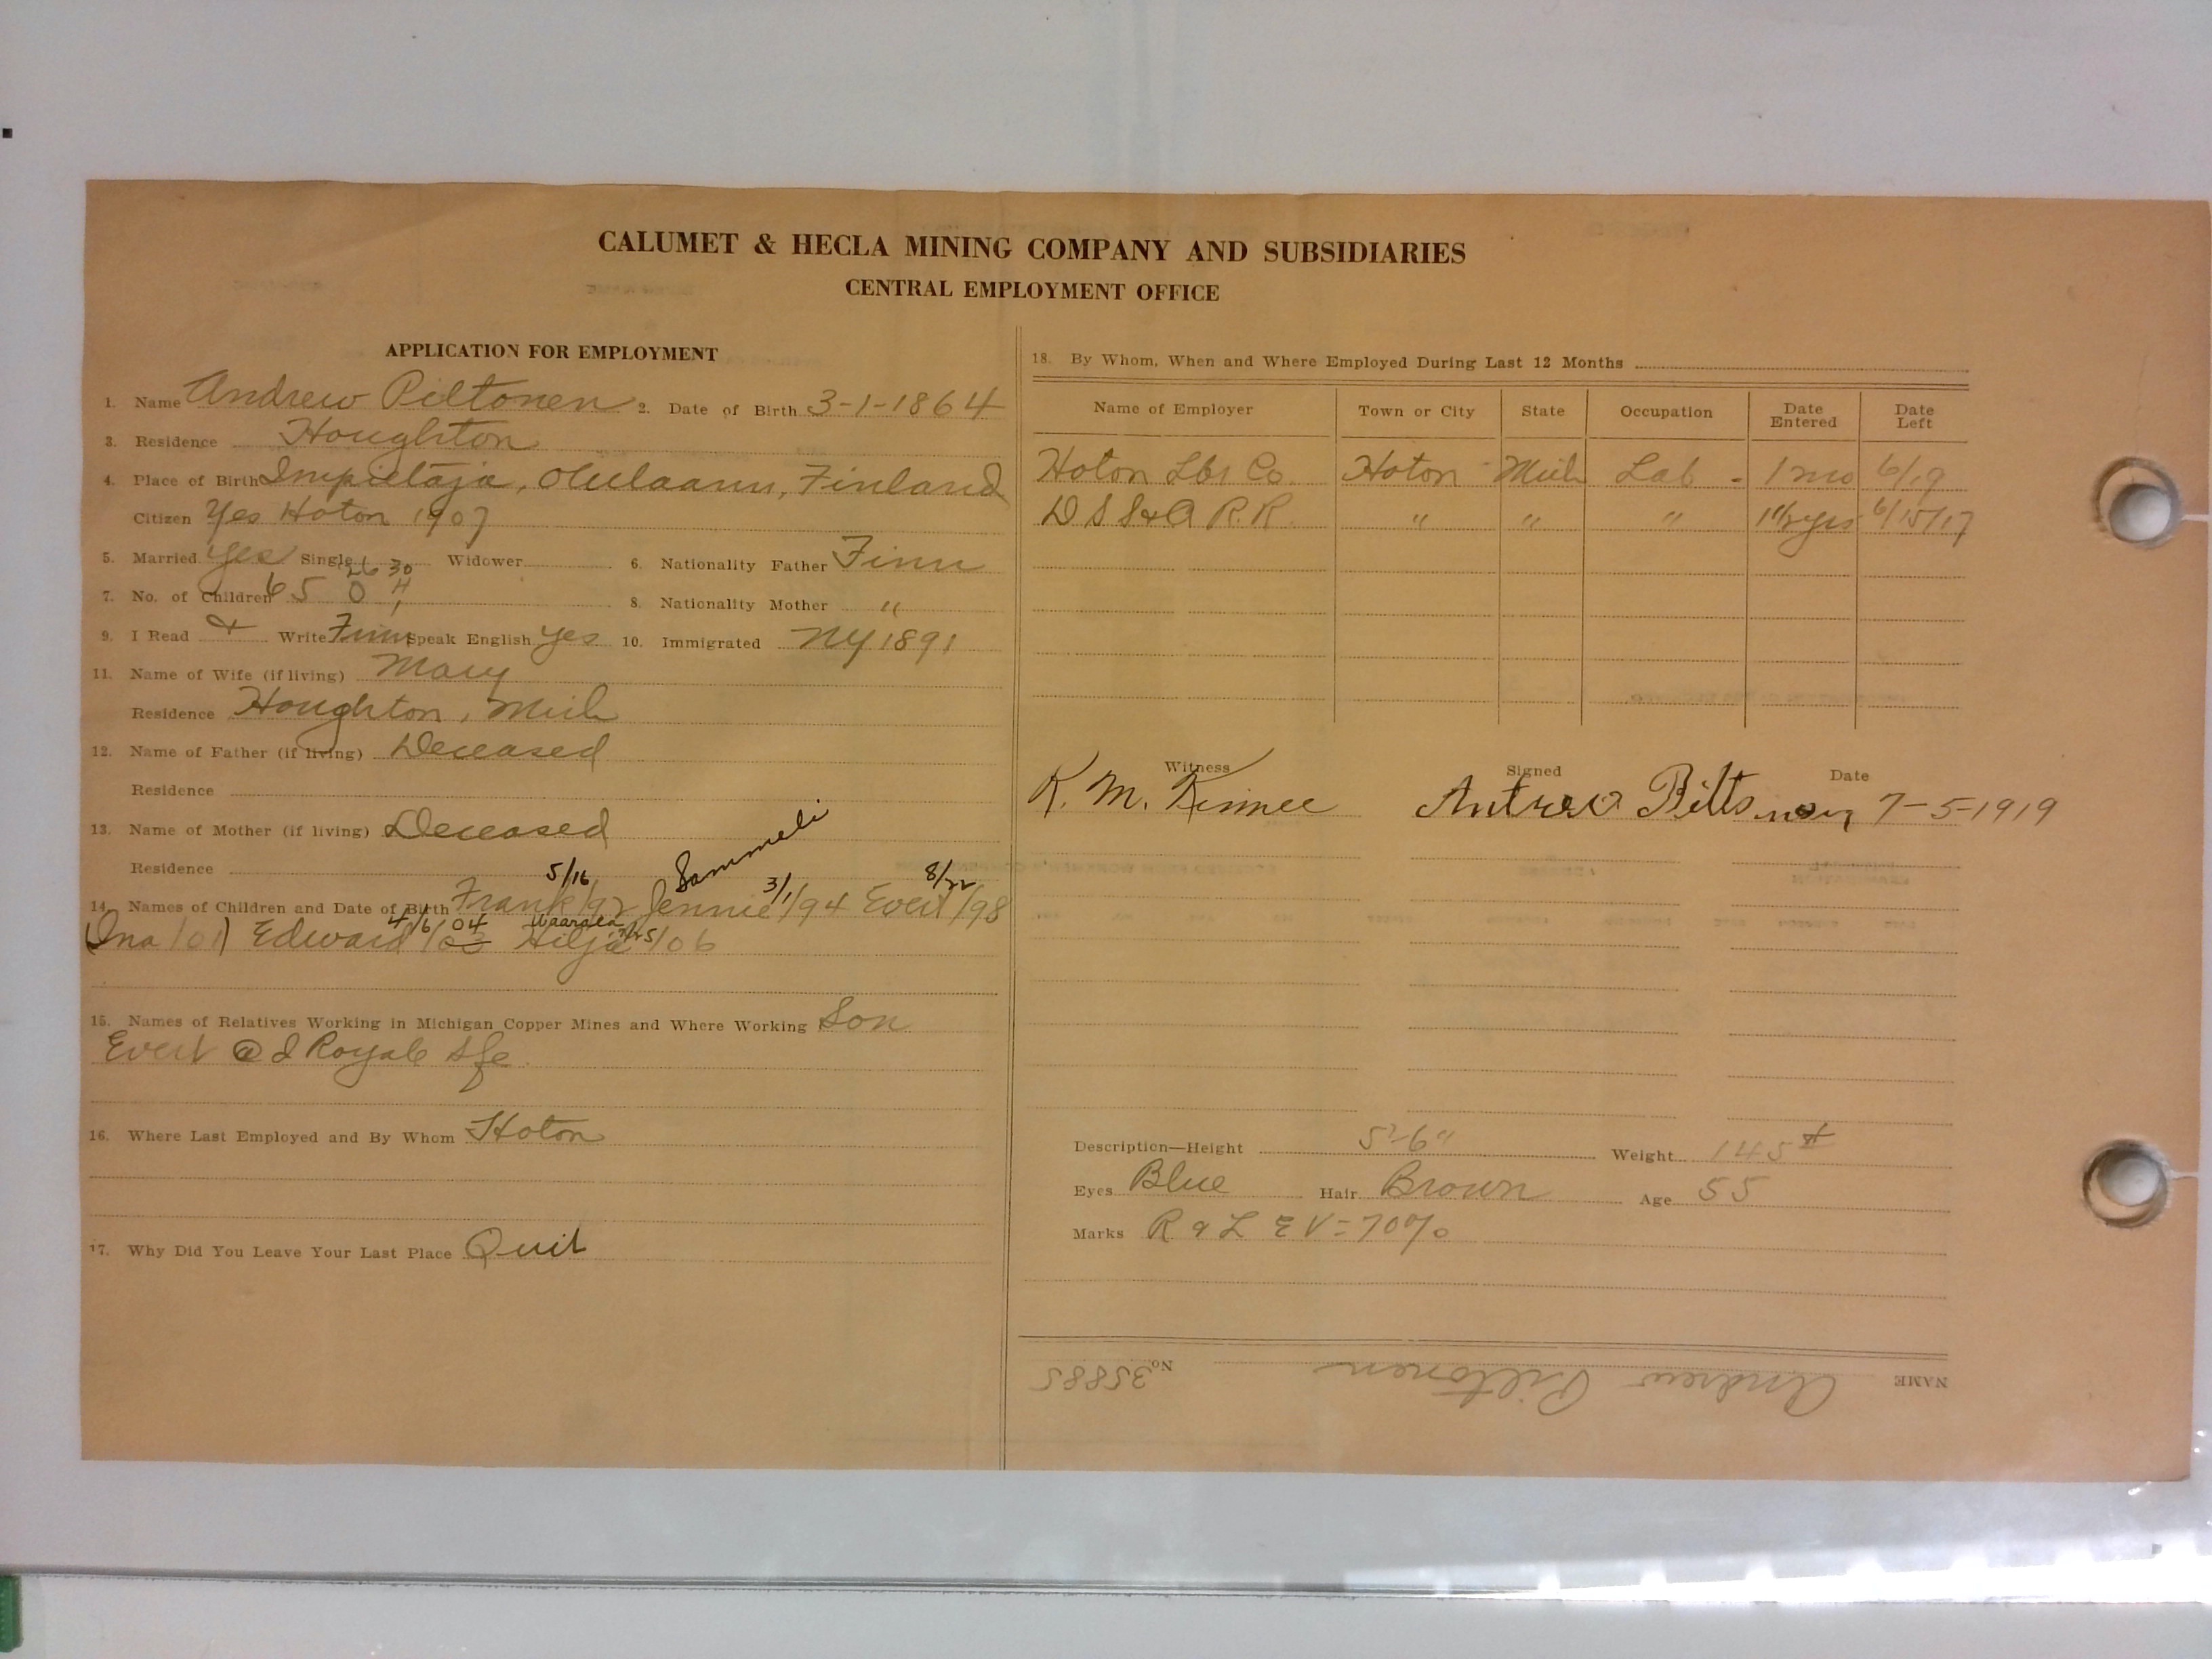 CALUMET & HECLA MINING COMPANY AND SUBSIDIARIES
CENTRAL EMPLOYMENT OFFICE
APPLICATION FOR EMPLOYMENT
1. Name Andrew Piltonen 2. Date of Birth 3-1-1864
3. Residence Houghton
4. Place of Birth Finland
Citizen Yes Hoton 1907
5. Married Yes Single Widower 6. Nationality Father Finn
26 30
7. No. of Children 6 5 0 4 8. Nationality Mother "
9. I Read & Write Finn Speak English yes 10. Immigrated NY 1891
11. Name of Wife (if living) Mary
Residence Houghton, Mich
12. Name of Father (if living) Deceased
Residence
13. Name of Mother (if living) Deceased
Residence
5/16 Sammeli 3/1 8/22
14. Names of Children and Date of Birth Frank /92 Jennie /94 Evert /98
4/6 04 Waaralea
(Ina /01) Edward Hilja /06
15. Names of Relatives Working in Michigan Copper Mines and Where Working Son
Evert @ I Royale sfe
16. Where Last Employed and By Whom Hoton
17. Why Did You Leave Your Last Place Quit
18. By Whom, When and Where Employed During Last 12 Months
Name of Employer Town or City State Occupation Date Entered Date Left
Hoton Lbr Co. Hoton Mich Lab - 1 mo 6/19
D S S & A R.R. " " " 1 1/2 yrs 6/15/17
Witness Signed Date
K. M. Kinnee Antrew 7-5-1919
Description—Height 5'-6" Weight 145 #
Eyes Blue Hair Brown Age 55
Marks R & L E V = 70%
NAME Andrew Piltonen No. 35885